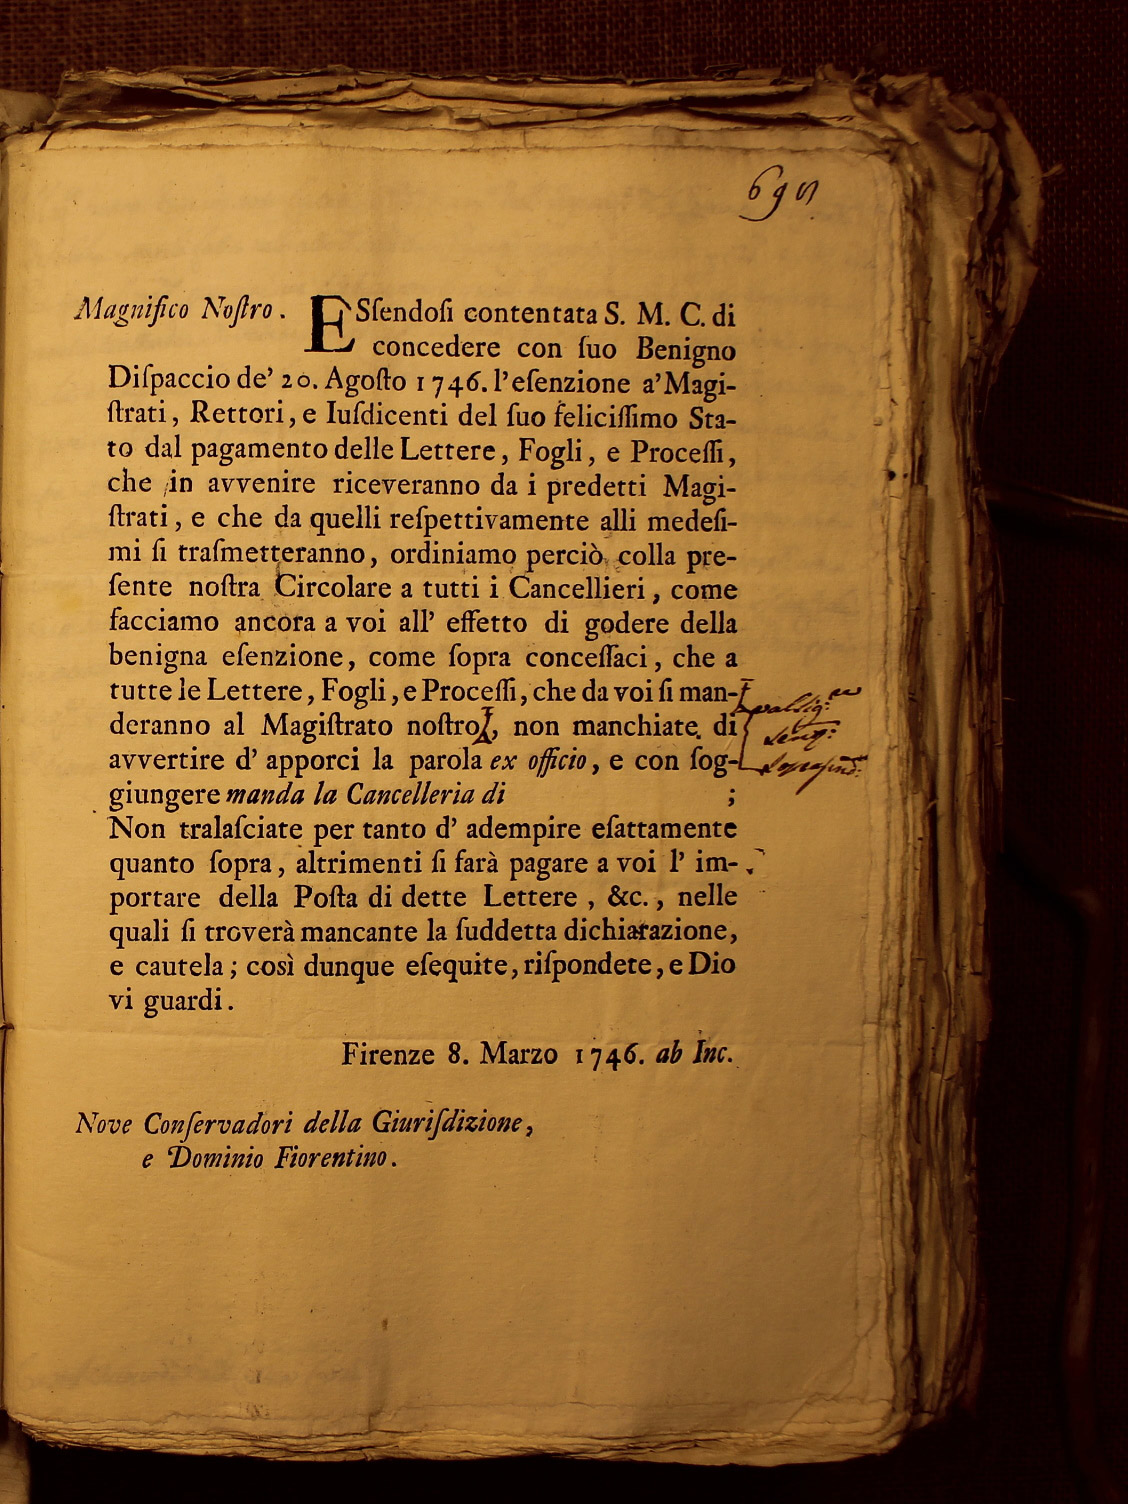 695
Magnifico Noſtro. ESſendoſi contentata S. M. C. di
concedere con ſuo Benigno
Diſpaccio de' 20. Agoſto 1746. l'eſenzione a' Magi-
ſtrati, Rettori, e Iuſdicenti del ſuo feliciſſimo Sta-
to dal pagamento delle Lettere, Fogli, e Proceſſi,
che in avvenire riceveranno da i predetti Magi-
ſtrati, e che da quelli reſpettivamente alli medeſi-
mi ſi traſmetteranno, ordiniamo perciò colla pre-
ſente noſtra Circolare a tutti i Cancellieri, come
facciamo ancora a voi all' effetto di godere della
benigna eſenzione, come ſopra conceſſaci, che a
tutte le Lettere, Fogli, e Proceſſi, che da voi ſi man-
deranno al Magiſtrato noſtro, non manchiate di
avvertire d' apporci la parola ex officio, e con ſog-
giungere manda la Cancelleria di ;
Non tralaſciate per tanto d' adempire eſattamente
quanto ſopra, altrimenti ſi farà pagare a voi l' im-
portare della Poſta di dette Lettere, &c., nelle
quali ſi troverà mancante la ſuddetta dichiarazione,
e cautela; così dunque eſequite, riſpondete, e Dio
vi guardi.
Firenze 8. Marzo 1746. ab Inc.
Nove Conſervadori della Giuriſdizione,
e Dominio Fiorentino.